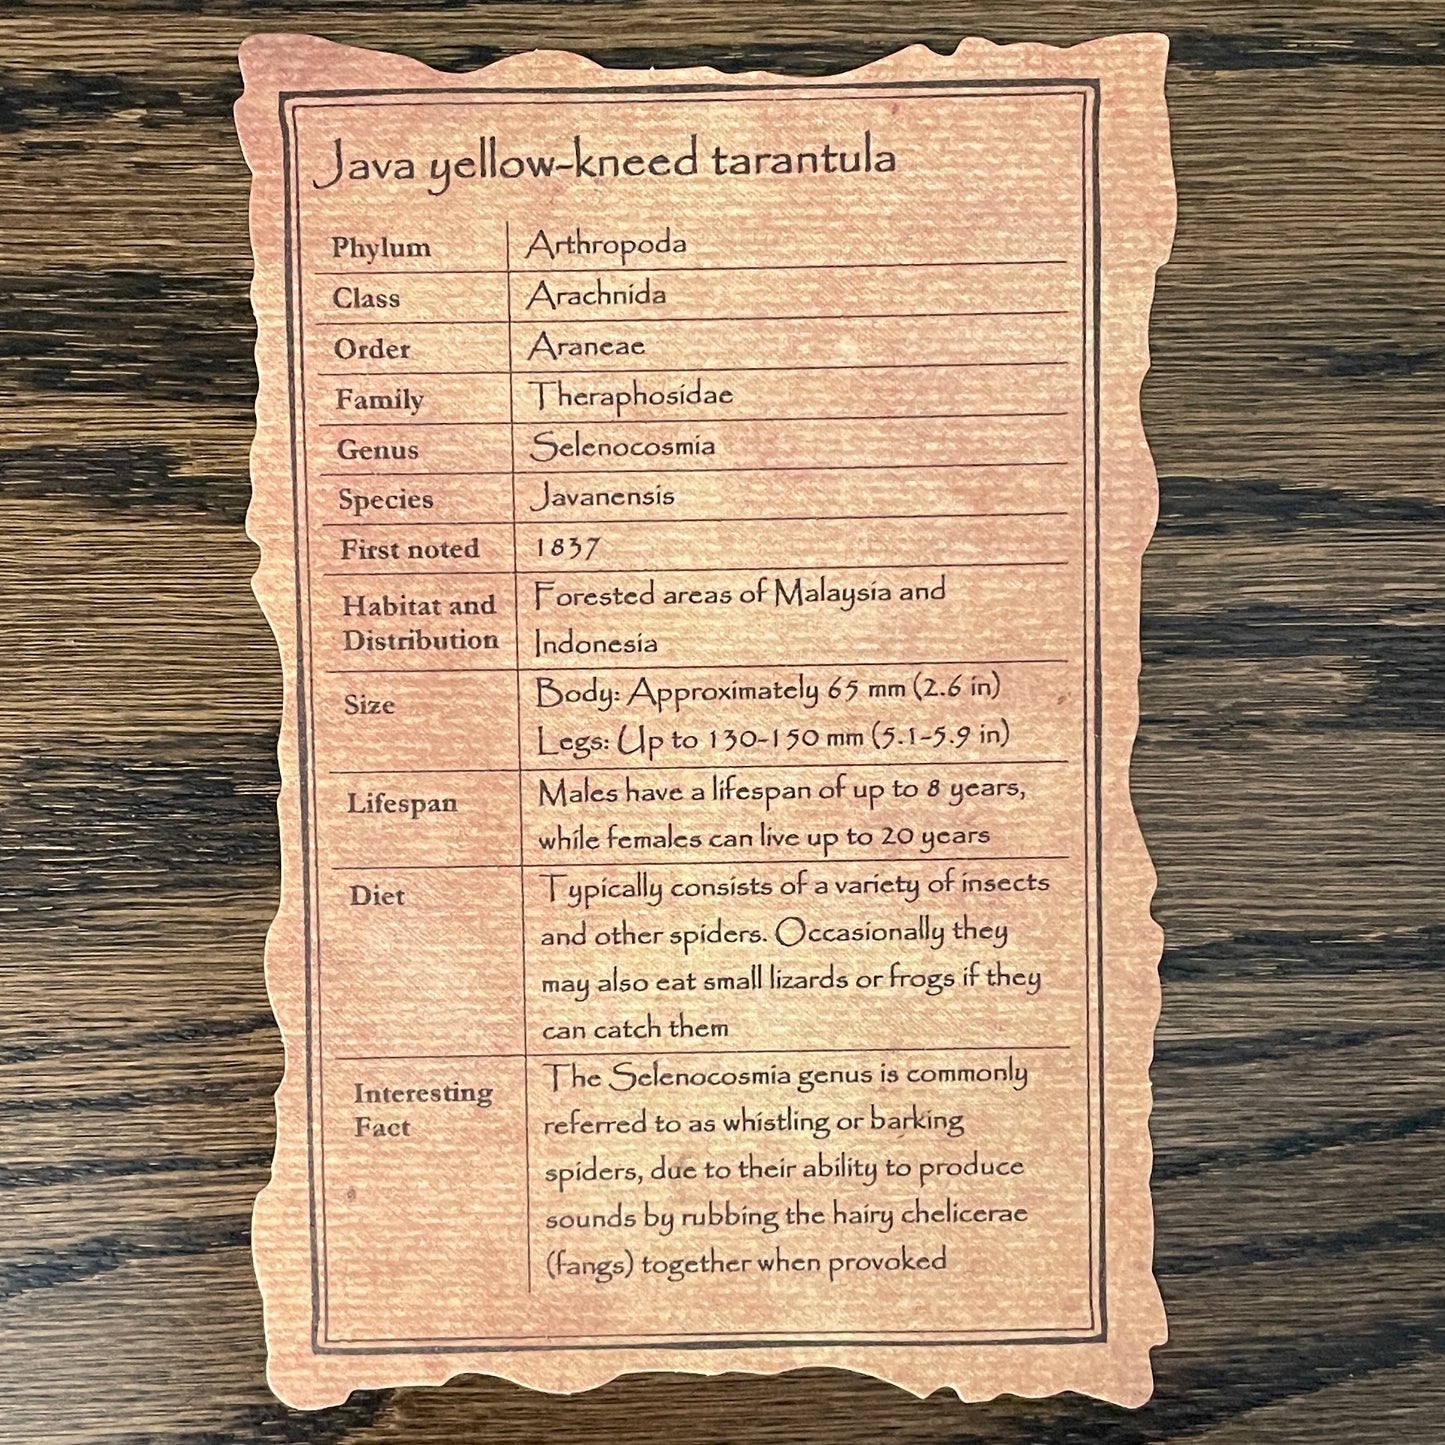 Java yellow-kneed tarantula
Phylum Arthropoda
Class Arachnida
Order Araneae
Family Theraphosidae
Genus Selenocosmia
Species Javanensis
First noted 1837
Habitat and Distribution Forested areas of Malaysia and
Indonesia
Size Body: Approximately 65 mm (2.6 in)
Legs: Up to 130-150 mm (5.1-5.9 in)
Lifespan Males have a lifespan of up to 8 years,
while females can live up to 20 years
Diet Typically consists of a variety of insects
and other spiders. Occasionally they
may also eat small lizards or frogs if they
can catch them
Interesting Fact The Selenocosmia genus is commonly
referred to as whistling or barking
spiders, due to their ability to produce
sounds by rubbing the hairy chelicerae
(fangs) together when provoked